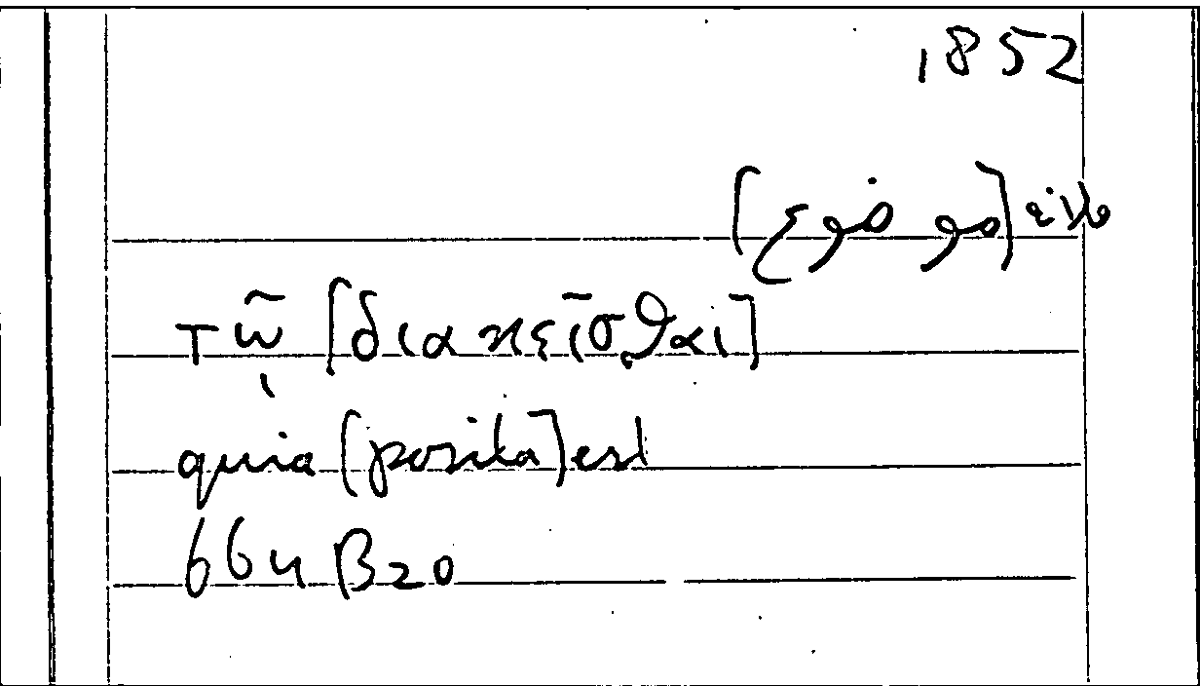 1852
لانه [موضوع]
τῷ [διακεῖσθαι]
quia [posita] est
664 B 20